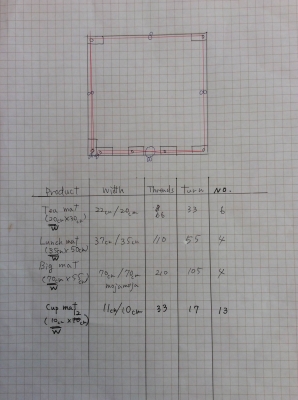 Product With Threads turn No.
Tea mat 22cm/20cm 66 33 6
(20cm×30cm)
W
Lunch mat 37cm/35cm 110 55 4
(35cm×50cm)
W
Big mat 70cm/70cm 210 105 4
(70cm×55cm) mojamoja
W
Cup mat 11cm/10cm 33 17 13
12
(10cm×10cm)
W